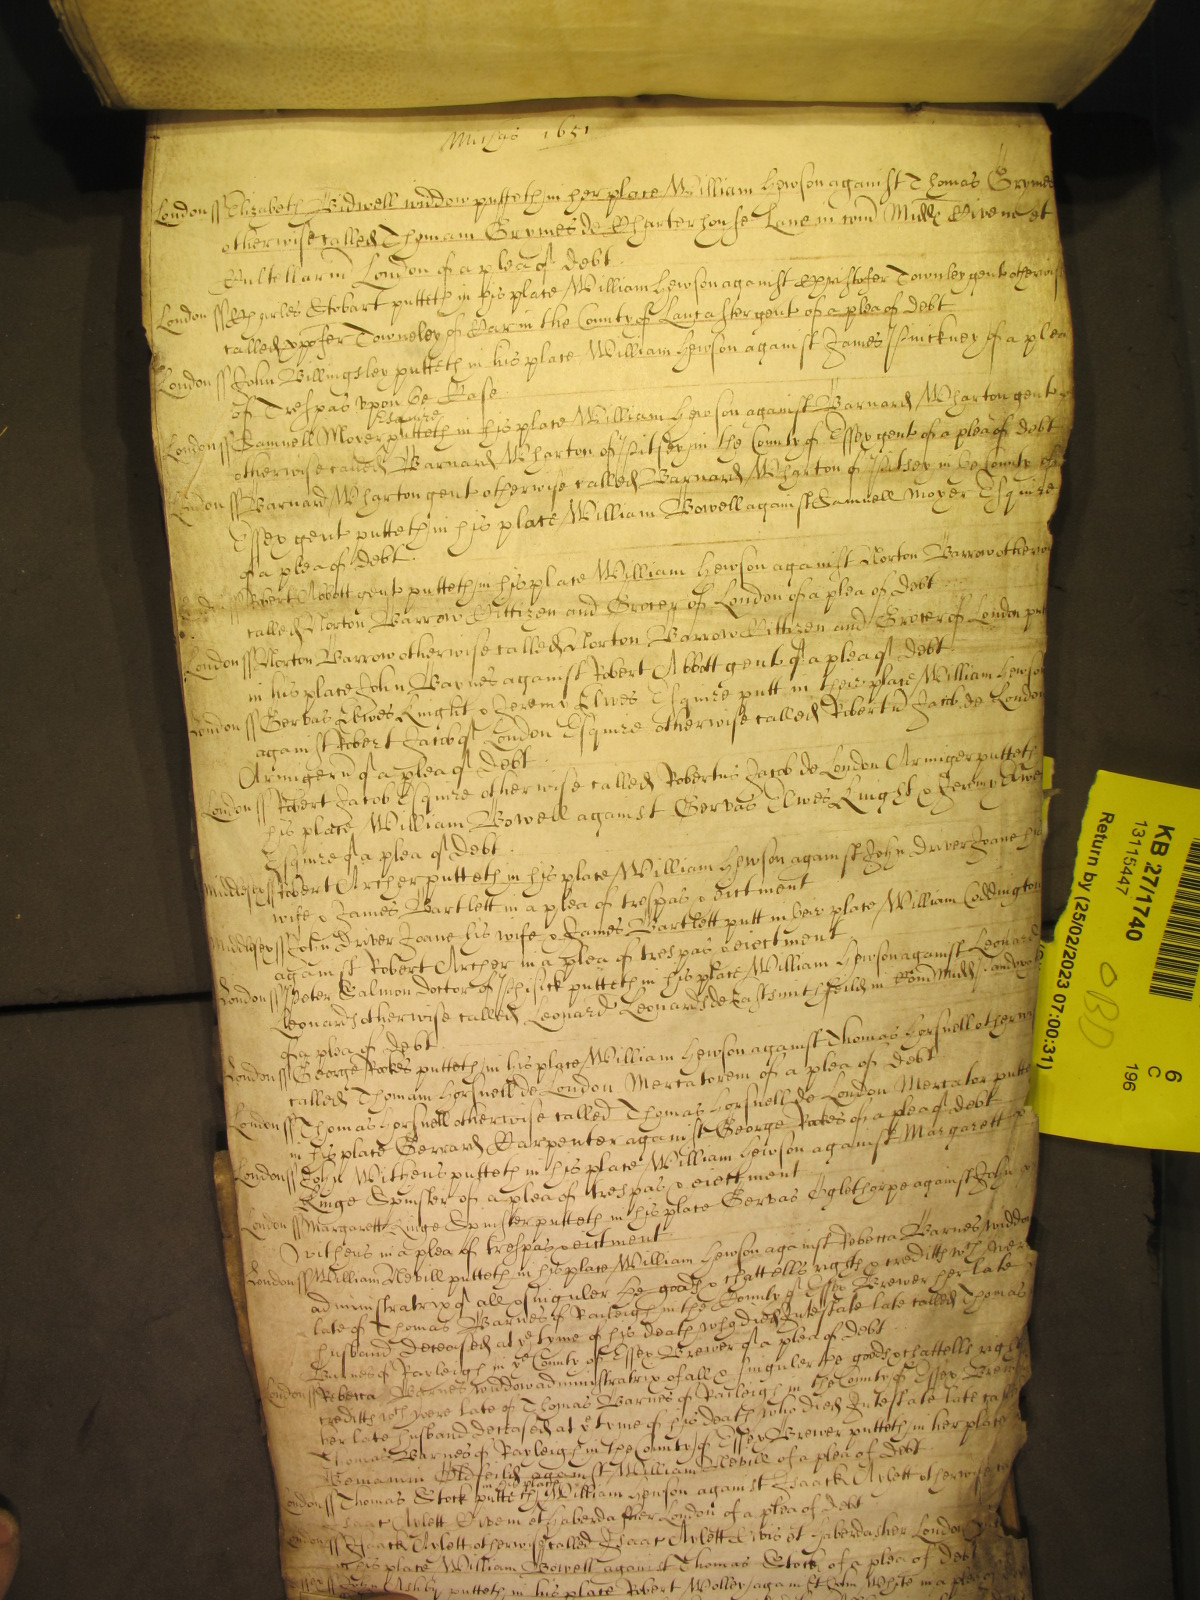 Michis 1651
London ss Elizabeth Bidwell widdow putteth in her place William Hewson against Thomas Grymes
otherwise called Thomam Grymes de Charterhouse Lane in Com Midd Civem et
Cultellar in London of a plea of debt
London ss Charles Stobart putteth in his place William Hewson against Christofer Towneley gent otherwise
called Xpofer Towneley of Carr in the County of Lancaster gent of a plea of debt
London ss John Billingsley putteth in his place William Hewson against James Pinckney of a plea
of Trespas upon ye Case
Esquire
London ss Samuell Moyer putteth in his place William Hewson against Barnard Wharton gent
otherwise called Barnard Wharton of Pitsey in the County of Essex gent of a plea of debt
London ss Barnard Wharton gent otherwise called Barnard Wharton of Pitsey in ye County of
Essex gent putteth in his place William Bowell against Samuell Moyer Esquire
of a plea of debt
London ss Robert Abbott gent putteth in his place William Hewson against Norton Barrow otherwise
called Norton Barrow Cittizen and Grocer of London of a plea of debt
London ss Norton Barrow otherwise called Norton Barrow Cittizen and Grocer of London putt
in his place John Barnes against Robert Abbott gent of a plea of debt
London ss Gervas Elwes Knight & Jeremy Elwes Esquire putt in their place William Hewson
against Robert Jacob of London Esquire otherwise called Robertu Jacob de London
Armigeru of a plea of debt
London ss Robert Jacob Esquire otherwise called Robertus Jacob de London Armiger putteth
his place William Bowell against Gervas Elwes Knight & Jeremy Elwes
Esquire of a plea of debt
Middlesex ss Robert Archer putteth in his place William Hewson against John Driver Joane his
wife & James Bartlett in a plea of trespas & eictment
Middlesex ss John Driver Joane his wife & James Bartlett putt in their place William Coddington
against Robert Archer in a plea of trespas & eiectment
London ss Peter Salmon Doctor of Phisick putteth in his place William Hewson against Leonard
Leonards otherwise called Leonard Leonards de Eastsmithfeild in Com Midd
of a plea of debt
London ss George Rookes putteth in his place William Hewson against Thomas Horsnell otherwise
called Thomam Horsnell de London Mercatorem of a plea of debt
London ss Thomas Horsnell otherwise called Thomas Horsnell de London Mercator putteth
in his place Gerrard Carpenter against George Rookes of a plea of debt
London ss John Withens putteth in his place William Hewson against Margarett
Kinge Spinster of a plea of trespas & eiectment
London ss Margarett Kinge Spinster putteth in his place Gervas Oglethorpe against John
Withens in a plea of trespas & eictment
London ss William Nevill putteth in his place William Hewson against Rebecca Barnes widdow
administratrix of all & singuler the goods & chattells rights & creditts wch were
late of Thomas Barnes of Rayleigh in the County of Essex Brewer her late
husband deceased at ye tyme of his death who died Intestate late called Thomas
Barnes of Rayleigh in ye County of Essex Brewer of a plea of debt
London ss Rebecca Barnes widdow administratrix of all & singuler the goods & chattells rights
creditts wch were late of Thomas Barnes of Raileigh in the County of Essex Brewer
her late husband deceased at ye tyme of his death who died Intestate late called
Thomas Barnes of Rayleigh in the County of Essex Brewer putteth in her place
Beniamin Oldfeild against William Nevill of a plea of debt
in his place
London ss Thomas Stock putteth William Hewson against Isaack Arlett otherwise ca
Isaac Arlett Civem et Haberdassher London of a plea of debt
London ss Isaack Arlett otherwise called Isaac Arlett Civis et Haberdasher London
in his place William Bowell against Thomas Stock of a plea of debt
Essex ss John Ashby putteth in his place Robert Wolley against John White in a plea of
KB 27/1740
13115447
Return by (25/02/2023 07:00:31)
OBD
6
C
196